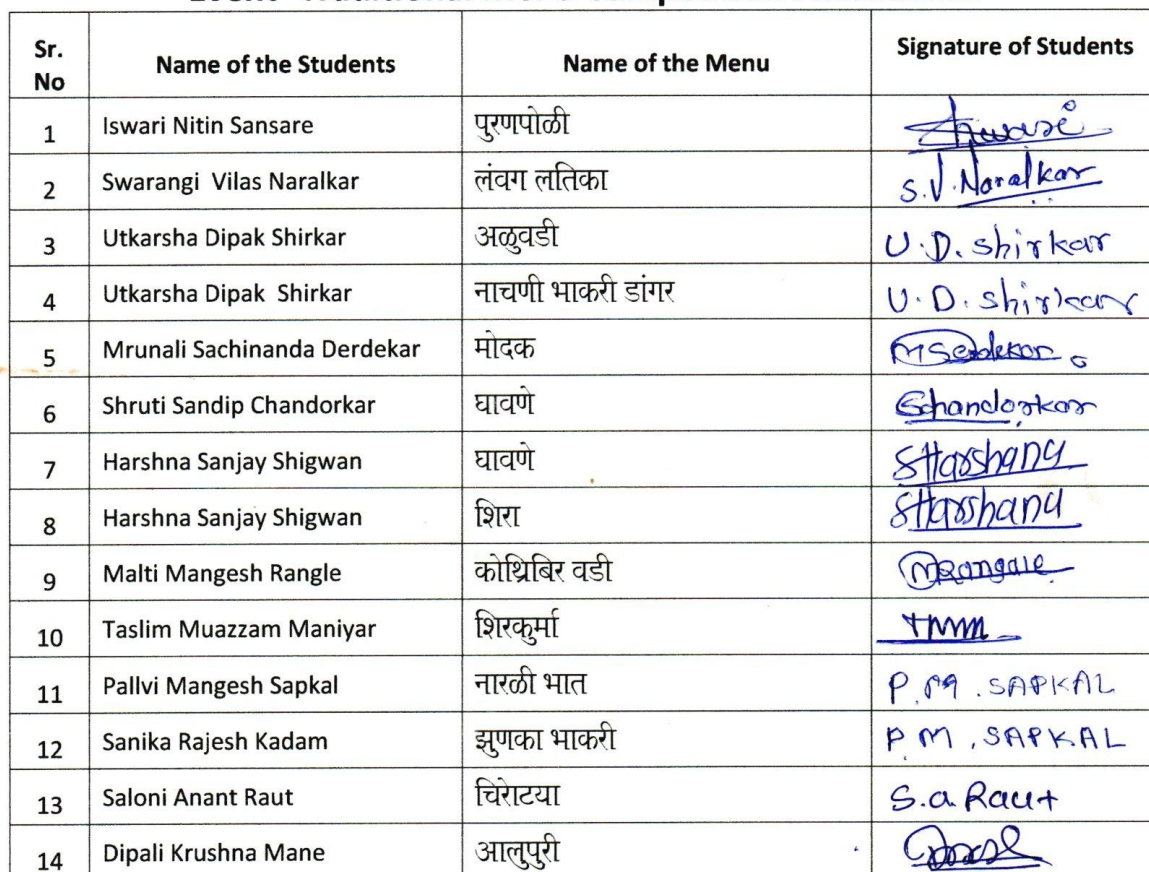 Sr. No Name of the Students Name of the Menu Signature of Students
1 Iswari Nitin Sansare पुरणपोळी
2 Swarangi Vilas Naralkar लंवग लतिका S.V. Naralkar
3 Utkarsha Dipak Shirkar अळुवडी U.D. Shirkar
4 Utkarsha Dipak Shirkar नाचणी भाकरी डांगर U.D. Shirkar
5 Mrunali Sachinanda Derdekar मोदक
6 Shruti Sandip Chandorkar घावणे Schandorkar
7 Harshna Sanjay Shigwan घावणे SHarshana
8 Harshna Sanjay Shigwan शिरा SHarshana
9 Malti Mangesh Rangle कोथ्रिबिर वडी
10 Taslim Muazzam Maniyar शिरकुर्मा
11 Pallvi Mangesh Sapkal नारळी भात P.M. SAPKAL
12 Sanika Rajesh Kadam झुणका भाकरी P M. SAPKAL
13 Saloni Anant Raut चिरोटया S.a. Raut
14 Dipali Krushna Mane आलुपुरी